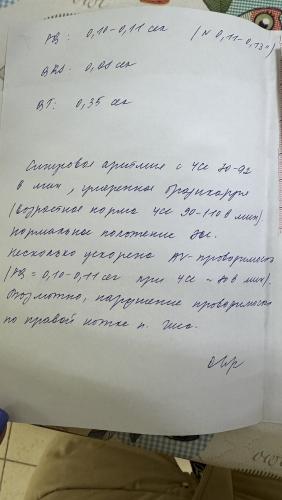 PQ: 0,10-0,11 сек (N 0,11-0,13")
QRS: 0,08 сек
QT: 0,35 сек
Синусовая аритмия с ЧСС 70-92
в мин, умеренная брадикардия
(возрастная норма ЧСС 90-110 в мин).
Нормальное положение ЭОС.
Несколько ускорена AV-проводимость
(PQ = 0,10-0,11 сек при ЧСС ~ 80 в мин).
Возможно, нарушение проводимости
по правой ножке п. Гиса.